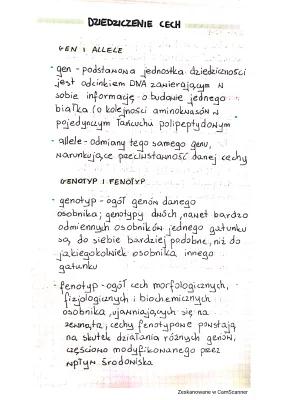 DZIEDZICZENIE CECH
GEN I ALLELE
• gen - podstawowa jednostka dziedziczności
jest odcinkiem DNA zawierającym w
sobie informację o budowie jednego
białka (o kolejności aminokwasów w
pojedynczym łańcuchu polipeptydowym
• allele - odmiany tego samego genu,
warunkujące przeciwstawność danej cechy
GENOTYP I FENOTYP
• genotyp - ogół genów danego
osobnika; genotypy dwóch, nawet bardzo
odmiennych osobników jednego gatunku
są, do siebie bardziej podobne, niż do
jakiegokolwiek osobnika innego
gatunku
• fenotyp - ogół cech morfologicznych,
fizjologicznych i biochemicznych
osobnika, ujawniających się na
zewnątrz; cechy fenotypowe powstają
na skutek działania różnych genów,
częściowo modyfikowanego przez
wpływ środowiska
Zeskanowane w CamScanner